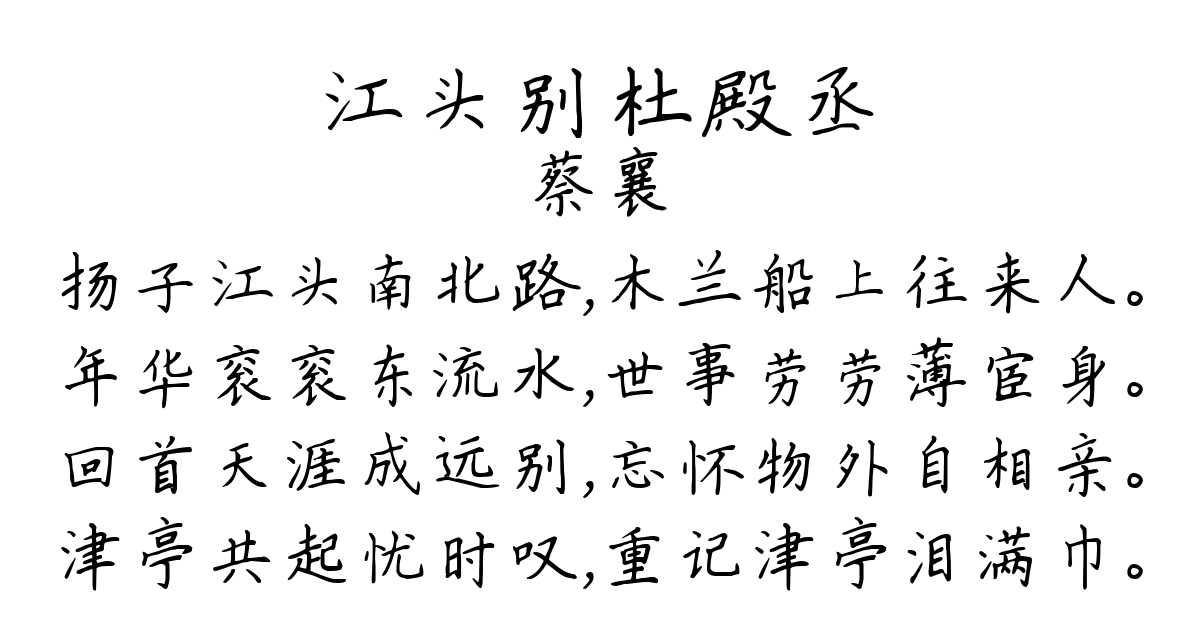 江头别杜殿丞
蔡襄
扬子江头南北路,木兰船上往来人。
年华衮衮东流水,世事劳劳薄宦身。
回首天涯成远别,忘怀物外自相亲。
津亭共起忧时叹,重记津亭泪满巾。